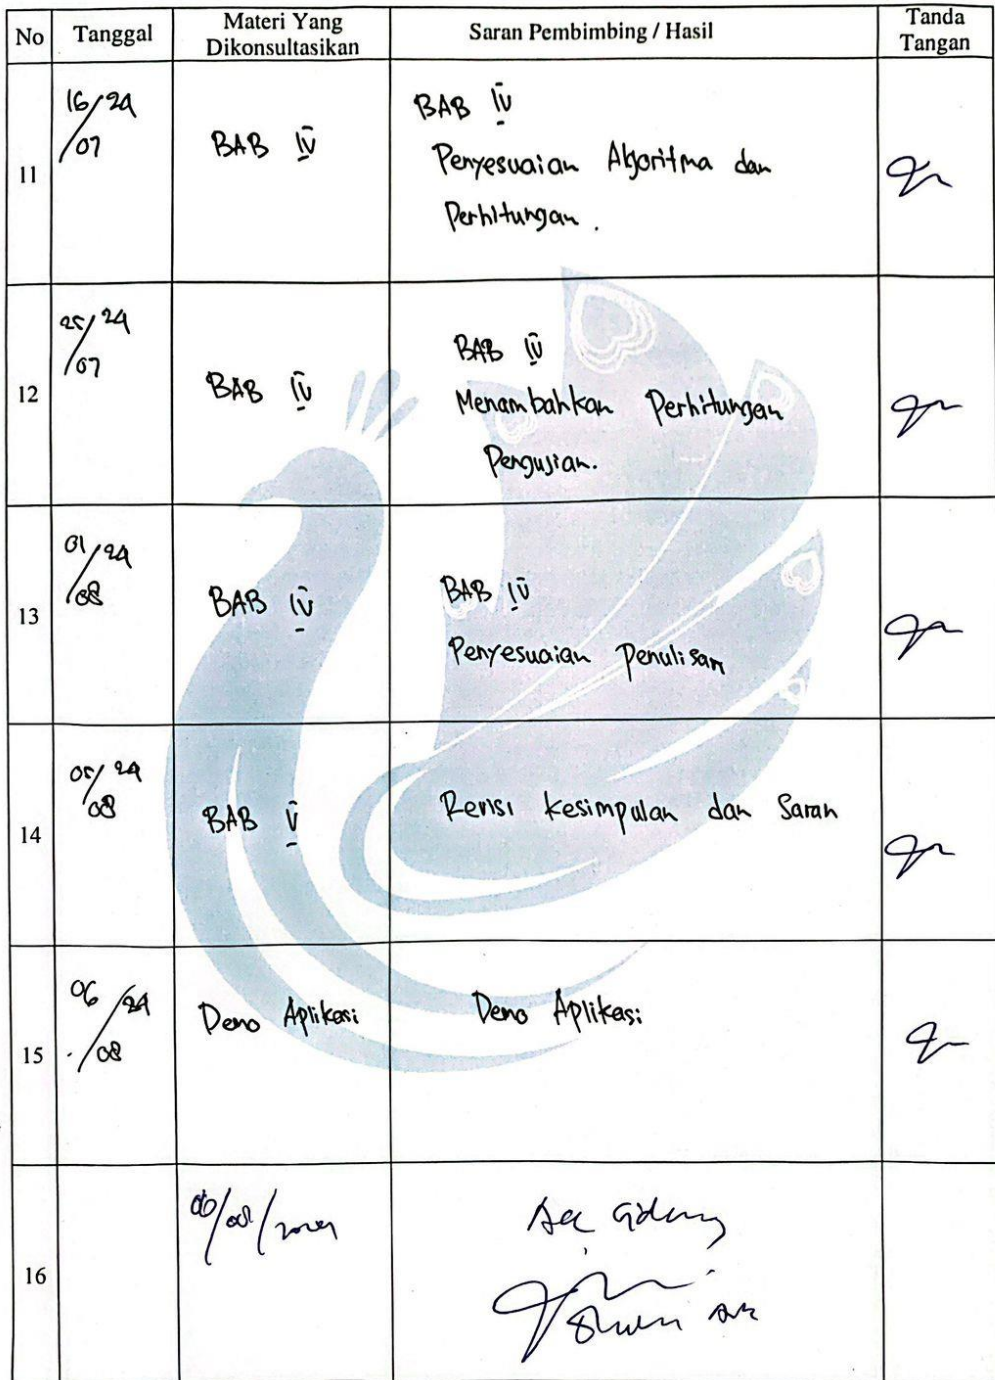 No Tanggal Materi Yang Dikonsultasikan Saran Pembimbing / Hasil Tanda Tangan
11 16/07/24 BAB IV BAB IV
Penyesuaian Algoritma dan
Perhitungan.
12 25/07/24 BAB IV BAB IV
Menambahkan Perhitungan
Pengujian.
13 01/08/24 BAB IV BAB IV
Penyesuaian Penulisan
14 05/08/24 BAB V Revisi kesimpulan dan Saran
15 06/08/24 Demo Aplikasi Demo Aplikasi
16 06/08/2024 Acc Sidang